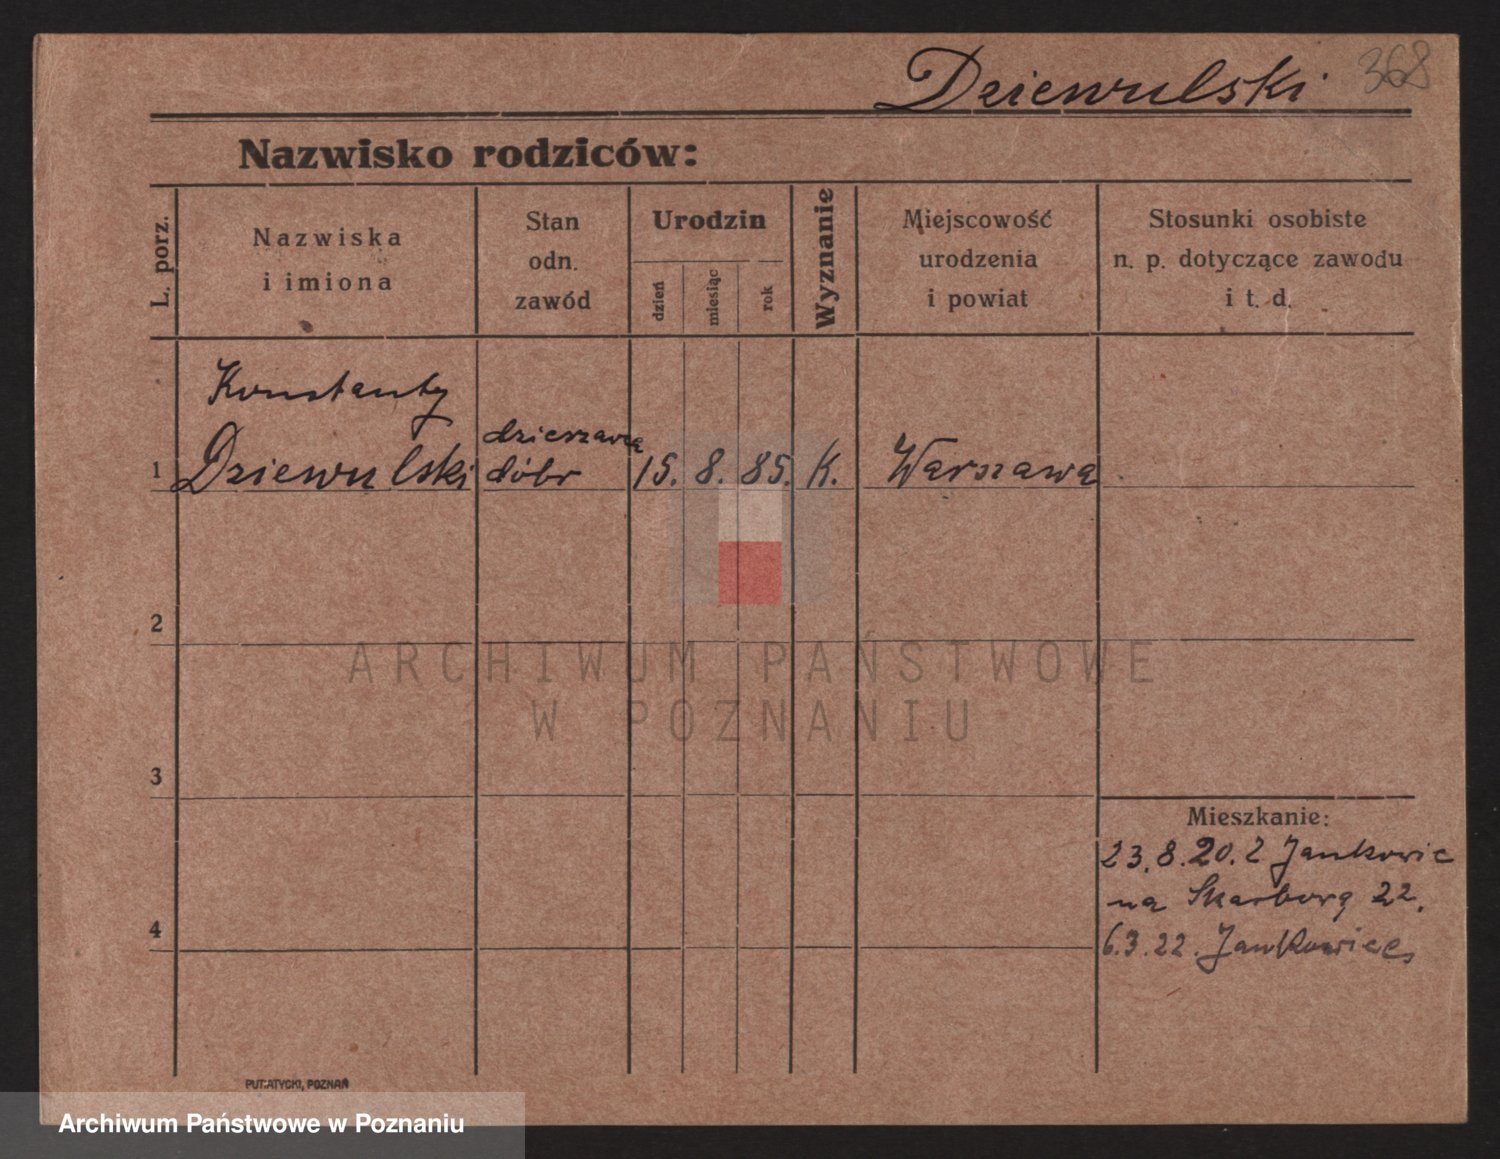 Dziewulski 368
Nazwisko rodziców:
L. porz.
Nazwiska
i imiona
Stan
odn.
zawód
Urodzin
dzień
miesiąc
rok
Wyznanie
Miejscowość
urodzenia
i powiat
Stosunki osobiste
n. p. dotyczące zawodu
i t. d.
Konstanty
1 Dziewulski
dzierzawca
dóbr
15. 8. 85. K. Warszawa
2
3
4
Mieszkanie:
23.8.20. Z Jankowic
na Skarbową 22.
6.3.22. Jankowice
PUT:ATYCKI, POZNAŃ
ARCHIWUM PAŃSTWOWE
W POZNANIU
Archiwum Państwowe w Poznaniu